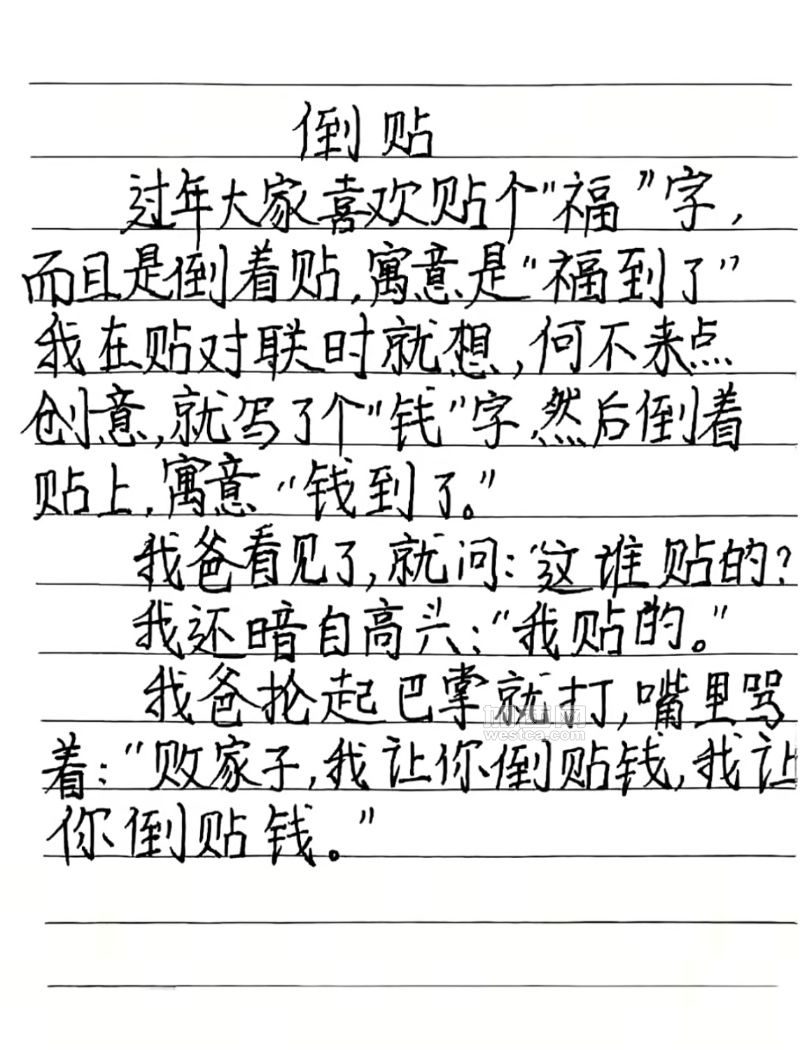 倒贴
过年大家喜欢贴个“福”字，
而且是倒着贴，寓意是“福到了”
我在贴对联时就想，何不来点
创意，就写了个“钱”字，然后倒着
贴上，寓意“钱到了。”
我爸看见了，就问：“这谁贴的？
我还暗自高头：“我贴的。”
我爸抡起巴掌就打，嘴里骂
着：“败家子，我让你倒贴钱，我让
你倒贴钱。”
westca.com